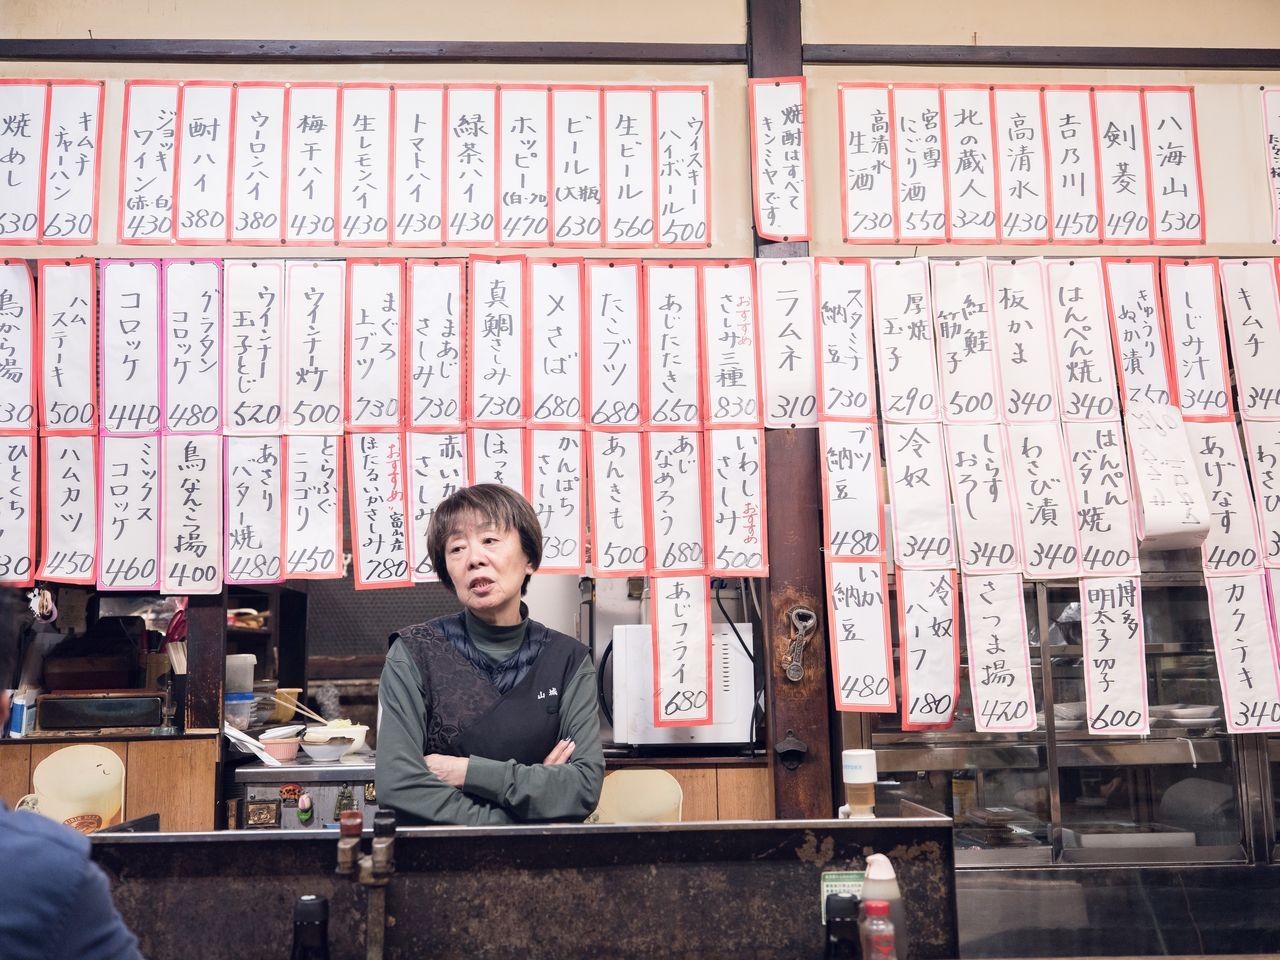 焼めし
630
キムチ
チャーハン
630
ジョッキ
ワイン
(赤・白)
430
酎ハイ
380
ウーロンハイ
380
梅干ハイ
430
生レモンハイ
430
トマトハイ
430
緑茶ハイ
430
ホッピー
(白・クロ)
470
ビール
(大瓶)
630
生ビール
560
ウイスキー
ハイボール
500
焼酎はすべて
キンミヤです。
高清水
生酒
730
宮の雪
にごり酒
550
北の蔵人
320
高清水
430
吉乃川
450
剣菱
490
八海山
530
鳥から揚
ハム
ステーキ
500
コロッケ
440
グラタン
コロッケ
480
ウインナー
玉子とじ
520
ウインナー炒
500
まぐろ
上ブツ
730
しまあじ
さしみ
730
真鯛さしみ
730
〆さば
680
たこブツ
680
あじたたき
650
おすすめ
さしみ三種
830
ラムネ
310
スタミナ
納豆
730
厚焼
玉子
290
紅鮭
筋子
500
板かま
340
はんぺん焼
340
きゅうり
ぬか漬
250
しじみ汁
340
キムチ
340
ひとくち
ハムカツ
450
ミックス
コロッケ
460
鳥なんこつ揚
400
あさり
バター焼
480
とらふぐ
ニコゴリ
450
おすすめ
富山産
ほたるいかさしみ
780
赤いか
さしみ
かんぱち
さしみ
730
あんきも
500
あじ
なめろう
680
いわし
さしみ
おすすめ
500
ブツ
納豆
480
冷奴
340
しらす
おろし
340
わさび漬
340
はんぺん
バター焼
400
あげなす
400
わさび
あじフライ
680
いか
納豆
480
冷奴
ハーフ
180
さつま揚
420
博多
明太子切子
600
カクテキ
340
山城